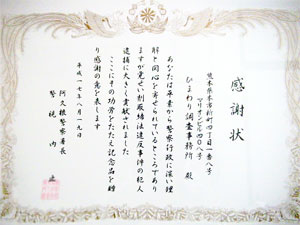 感謝状
熊本県本市新町四丁目一番八号
マリオンビル四〇八号
ひまわり調査事務所 殿
あなたは平素から警察行政に深い理
解と同心を寄せられているところであり
ますが覚せい剤取締法違反事件の犯人
逮捕に大きく貢献されました
ここにその功労をたたえ記念品を贈
り感謝の意を表します
平成一七年八月一九日
阿久根警察署長
警視 内